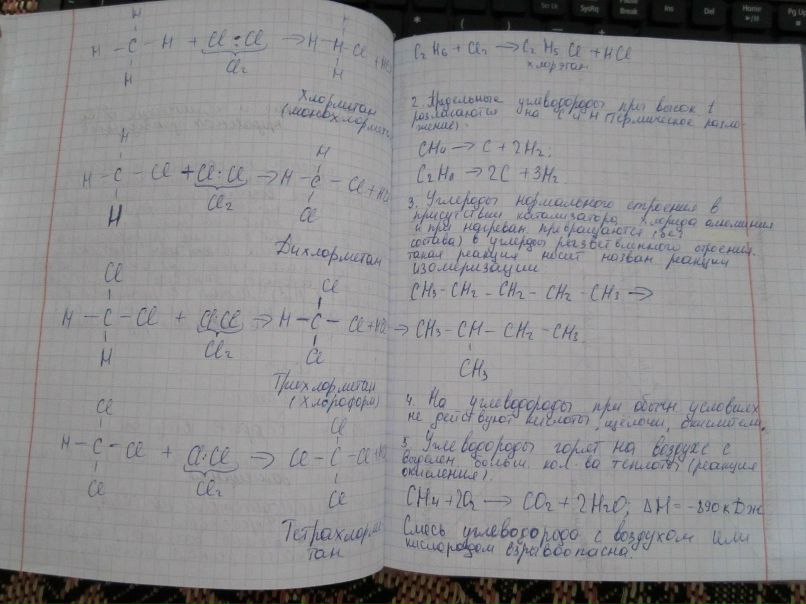 H
H - C - H + Cl : Cl → H - H - Cl + HCl
H
Cl2
H
H
Хлорметан
(монохлорметан
H
H - C - Cl + Cl : Cl → H - C - Cl + HCl
H
Cl2
H
Cl
Дихлорметан
Cl
H - C - Cl + Cl : Cl → H - C - Cl + HCl
H
Cl2
Cl
Cl
Трихлорметан
(хлороформ)
Cl
H - C - Cl + Cl : Cl → Cl - C - Cl + HCl
Cl
Cl2
Cl
Cl
Тетрахлорме
тан
C2H6 + Cl2 → C2H5Cl + HCl
хлорэтан
2. Предельные углеводороды при высок t
разлагаются на C и H (термическое разло-
жение).
CH4 → C + 2H2;
C2H6 → 2C + 3H2
3. Углероды нормального строения в
присутствии катализатора хлорида алюминия
и при нагреван. превращаются (без
состава) в углерды разветвленного строения.
такая реакция носит назван реакции
изомеризации
CH3 - CH2 - CH2 - CH2 - CH3 →
→ CH3 - CH - CH2 - CH3
CH3
4. На углеводороды при обычн условиях
не действуют кислоты, щелочи, окислители.
5. Углеводороды горят на воздухе с
выделен. больш. кол-ва теплоты (реакция
окисления).
CH4 + 2O2 → CO2 + 2H2O; ΔH = -890 кДж
Смесь углеводорода с воздухом или
кислородом взрывоопасна.